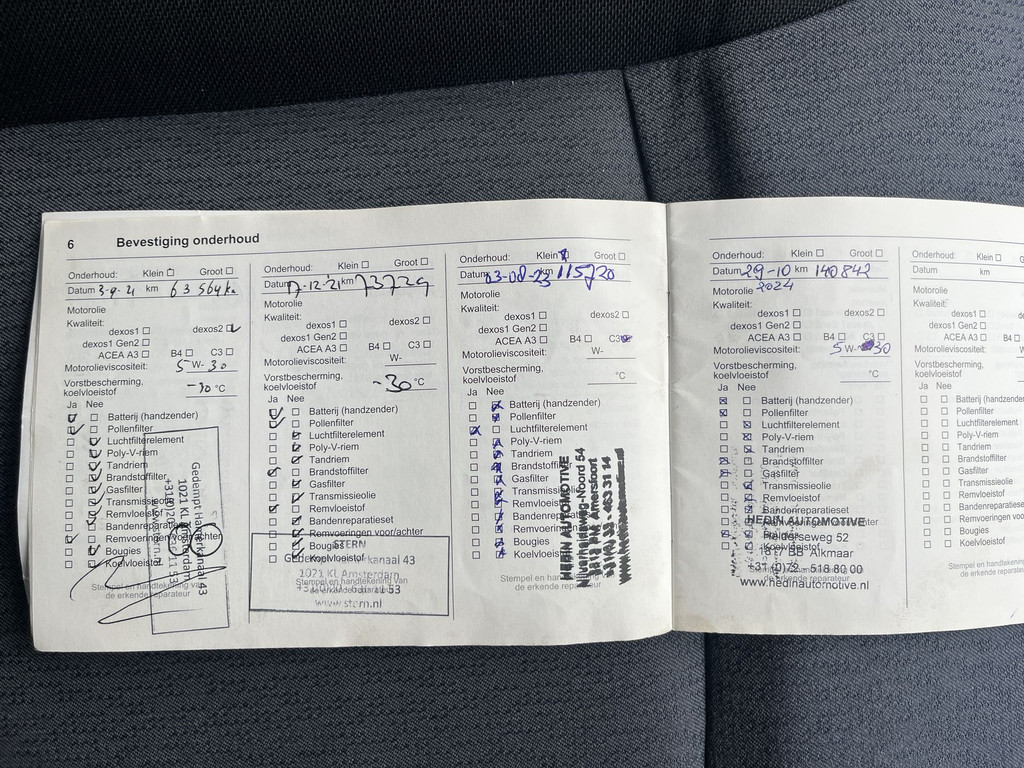 6 Bevestiging onderhoud
Onderhoud: Klein Groot
Datum 3-9-21 km 63564km
Motorolie
Kwaliteit:
dexos1 dexos2
dexos1 Gen2
ACEA A3 B4 C3
Motorolieviscositeit: 5 W- 30
Vorstbescherming,
koelvloeistof -30 °C
Ja Nee
Batterij (handzender)
Pollenfilter
Luchtfilterelement
Poly-V-riem
Tandriem
Brandstoffilter
Gasfilter
Transmissieolie
Remvloeistof
Bandenreparatieset
Remvoeringen voor/achter
Bougies
Koelvloeistof
Stempel en handtekening van
de erkende reparateur
Gedempt Hamerkanaal 43
1021 KL Amsterdam
www.stern.nl
Onderhoud: Klein Groot
Datum 17-12-'21 km 73729
Motorolie
Kwaliteit:
dexos1 dexos2
dexos1 Gen2
ACEA A3 B4 C3
Motorolieviscositeit: W-
Vorstbescherming,
koelvloeistof -30 °C
Ja Nee
Batterij (handzender)
Pollenfilter
Luchtfilterelement
Poly-V-riem
Tandriem
Brandstoffilter
Gasfilter
Transmissieolie
Remvloeistof
Bandenreparatieset
Remvoeringen voor/achter
Bougies
Koelvloeistof
Stempel en handtekening van
de erkende reparateur
STERN
Gedempt Hamerkanaal 43
1021 KL Amsterdam
www.stern.nl
Onderhoud: Klein Groot
Datum 03-08-23 km 115720
Motorolie
Kwaliteit:
dexos1 dexos2
dexos1 Gen2
ACEA A3 B4 C3
Motorolieviscositeit: W-
Vorstbescherming,
koelvloeistof °C
Ja Nee
Batterij (handzender)
Pollenfilter
Luchtfilterelement
Poly-V-riem
Tandriem
Brandstoffilter
Gasfilter
Transmissieolie
Remvloeistof
Bandenreparatieset
Remvoeringen
Bougies
Koelvloeistof
Stempel en handtekening van
de erkende reparateur
HEDIN AUTOMOTIVE
Nijverheidsweg-Noord 54
3812 PM Amersfoort
+31(0)33 - 463 31 14
www.hedinautomotive.nl
Onderhoud: Klein Groot
Datum 29-10 km 140842
2024
Motorolie
Kwaliteit:
dexos1 dexos2
dexos1 Gen2
ACEA A3 B4 C3
Motorolieviscositeit: 5 W- 30
Vorstbescherming,
koelvloeistof °C
Ja Nee
Batterij (handzender)
Pollenfilter
Luchtfilterelement
Poly-V-riem
Tandriem
Brandstoffilter
Gasfilter
Transmissieolie
Remvloeistof
Bandenreparatieset
Remvoeringen voor/achter
Bougies
Koelvloeistof
de erkende reparateur
HEDIN AUTOMOTIVE
Helderseweg 52
1817 BB Alkmaar
+31 (0)72 - 518 80 00
www.hedinautomotive.nl
Onderhoud: Klein
Datum km
Motorolie
Kwaliteit:
dexos1
dexos1 Gen2
ACEA A3 B4
Motorolieviscositeit: W-
Vorstbescherming,
koelvloeistof
Ja Nee
Batterij (handzender)
Pollenfilter
Luchtfilterelement
Poly-V-riem
Tandriem
Brandstoffilter
Gasfilter
Transmissieolie
Remvloeistof
Bandenreparatieset
Remvoeringen voor/a
Bougies
Koelvloeistof
Stempel en handte
de erkende repara